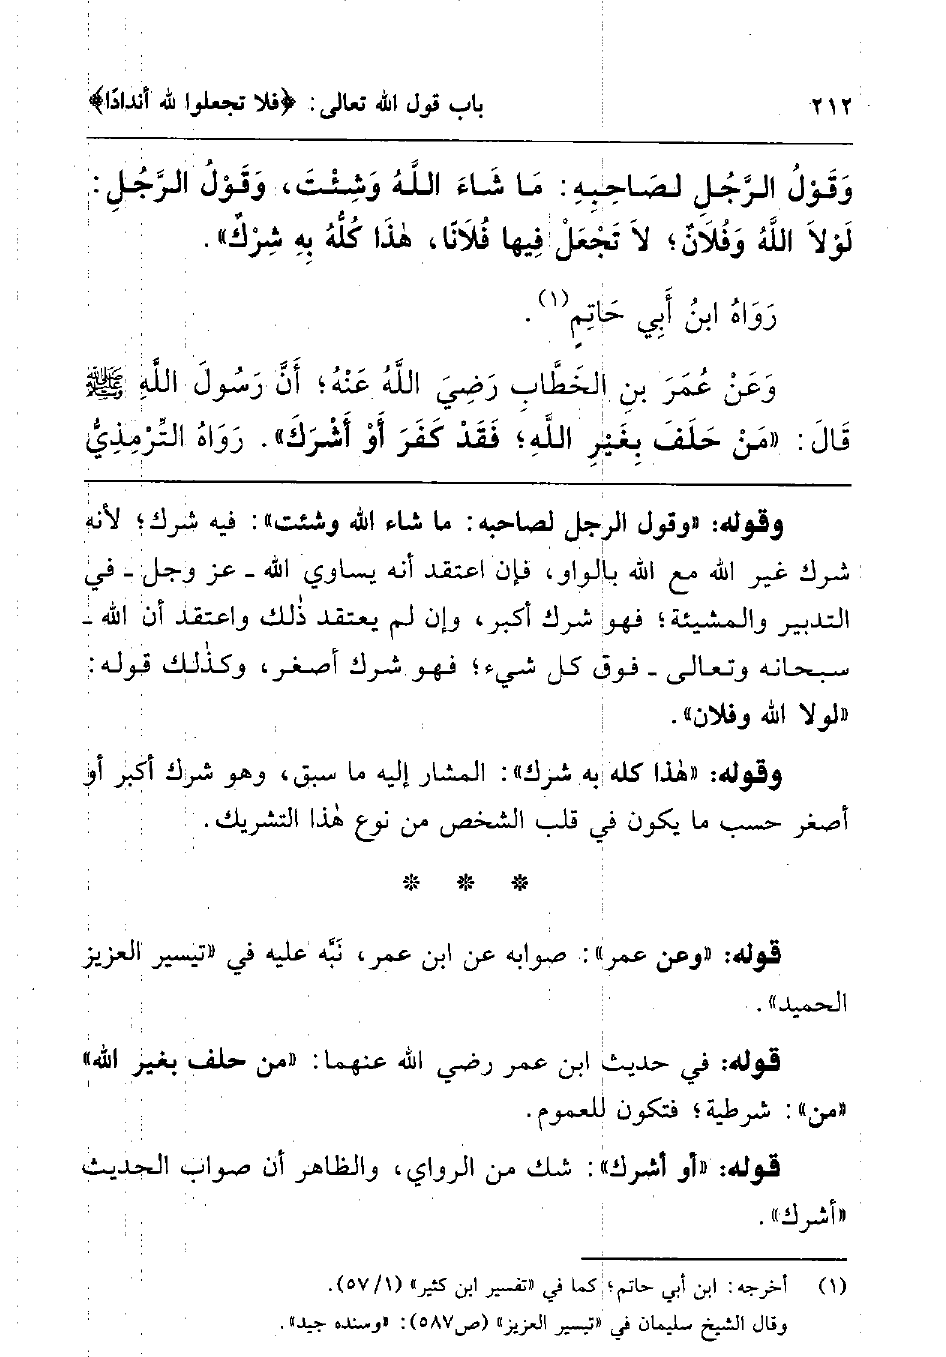 ٢١٢ باب قول الله تعالى: ﴿فلا تجعلوا لله أندادًا﴾
وَقَوْلُ الرَّجُلِ لصَاحِبِهِ: مَا شَاءَ اللَّهُ وَشِئْتَ، وَقَوْلُ الرَّجُلِ:
لَوْلاَ اللَّهُ وَفُلَانٌ؛ لاَ تَجْعَلْ فِيها فُلَانًا، هٰذَا كُلُّهُ بِهِ شِرْكٌ».
رَوَاهُ ابنُ أَبِي حَاتِمٍ(١).
وَعَنْ عُمَرَ بنِ الخَطَّابِ رَضِيَ اللَّهُ عَنْهُ؛ أَنَّ رَسُولَ اللَّهِ ﷺ
قَالَ: «مَنْ حَلَفَ بِغَيْرِ اللَّهِ؛ فَقَدْ كَفَرَ أَوْ أَشْرَكَ». رَوَاهُ التِّرْمِذِيُّ
وقوله: «وقول الرجل لصاحبه: ما شاء الله وشئت»: فيه شرك؛ لأنه
شرك غير الله مع الله بالواو، فإن اعتقد أنه يساوي الله ـ عز وجل ـ في
التدبير والمشيئة؛ فهو شرك أكبر، وإن لم يعتقد ذٰلك واعتقد أن الله ـ
سبحانه وتعالى ـ فوق كل شيء؛ فهو شرك أصغر، وكذٰلك قوله:
«لولا الله وفلان».
وقوله: «هٰذا كله به شرك»: المشار إليه ما سبق، وهو شرك أكبر أو
أصغر حسب ما يكون في قلب الشخص من نوع هٰذا التشريك.
* * *
قوله: «وعن عمر»: صوابه عن ابن عمر، نَبَّه عليه في «تيسير العزيز
الحميد».
قوله: في حديث ابن عمر رضي الله عنهما: «من حلف بغير الله»
«من»: شرطية؛ فتكون للعموم.
قوله: «أو أشرك»: شك من الرواي، والظاهر أن صواب الحديث
«أشرك».
(١) أخرجه: ابن أبي حاتم؛ كما في «تفسير ابن كثير» (١/ ٥٧).
وقال الشيخ سليمان في «تيسير العزيز» (ص٥٨٧): «وسنده جيد».